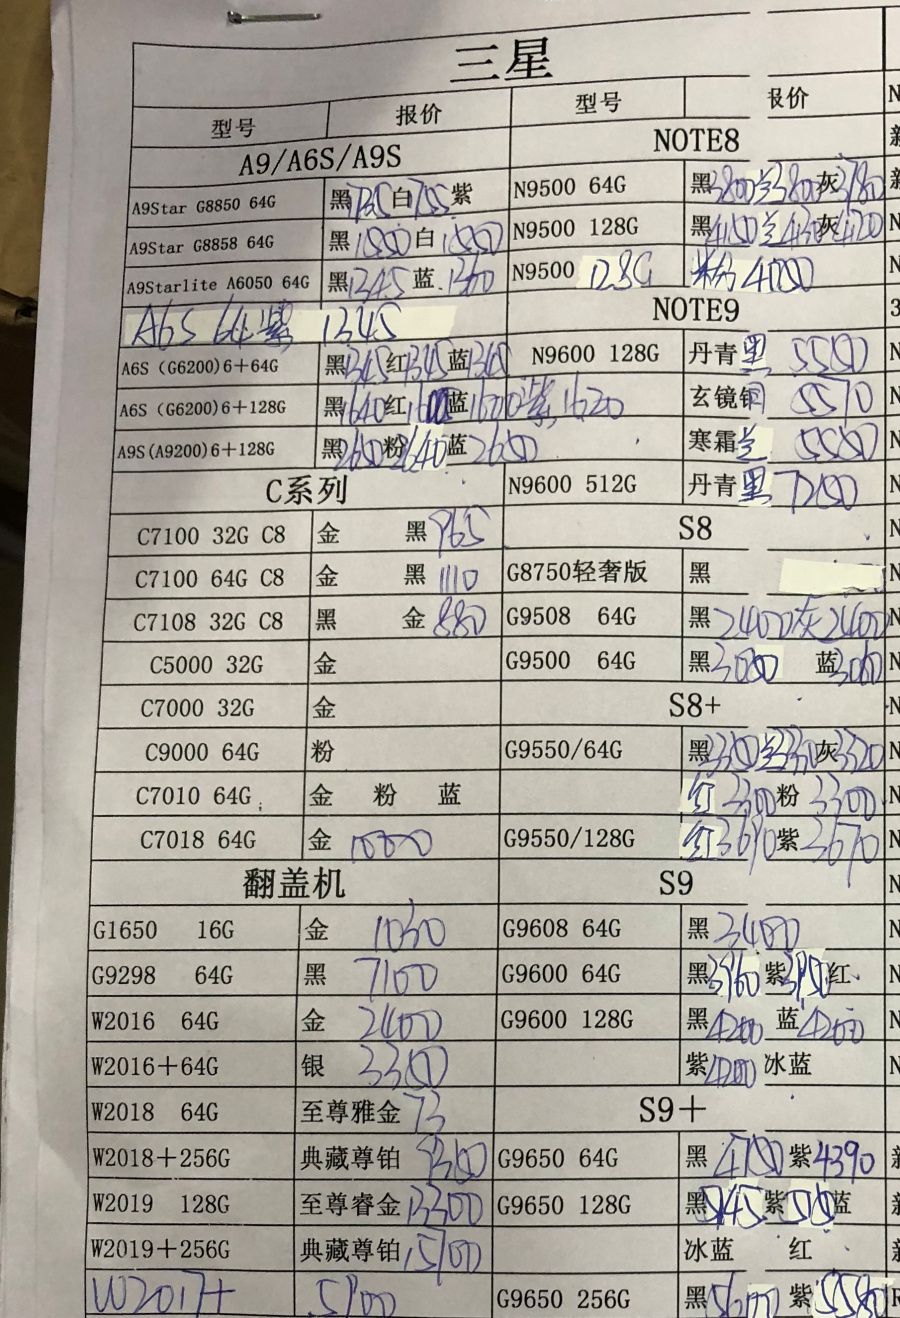 三星
型号 报价 型号 报价
A9/A6S/A9S NOTE8
A9Star G8850 64G 黑 白 紫 N9500 64G 黑3800兰3800灰3780
A9Star G8858 64G 黑1550白1550 N9500 128G 黑4150兰 灰4120
A9Starlite A6050 64G 黑1345蓝1360 N9500 128G 粉4080
A6S 64紫 1345 NOTE9
A6S (G6200)6+64G 黑1345红1345蓝1345 N9600 128G 丹青黑 5550
A6S (G6200)6+128G 黑1640红 蓝 紫1620 玄镜铜 5570
A9S(A9200)6+128G 黑 粉2640蓝2650 寒霜兰 5550
C系列 N9600 512G 丹青黑
C7100 32G C8 金 黑965 S8
C7100 64G C8 金 黑1110 G8750轻奢版 黑
C7108 32G C8 黑 金880 G9508 64G 黑2400灰2400
C5000 32G 金 G9500 64G 黑 蓝
C7000 32G 金 S8+
C9000 64G 粉 G9550/64G 黑 兰 灰3320
C7010 64G 金 粉 蓝 红3300粉3300
C7018 64G 金1000 G9550/128G 红3690紫3670
翻盖机 S9
G1650 16G 金 1030 G9608 64G 黑3400
G9298 64G 黑 7100 G9600 64G 黑3960紫 红
W2016 64G 金 2400 G9600 128G 黑4200 蓝4200
W2016+64G 银 3300 紫4200冰蓝
W2018 64G 至尊雅金73 S9+
W2018+256G 典藏尊铂 G9650 64G 黑 紫4390
W2019 128G 至尊睿金13300 G9650 128G 黑 紫 蓝
W2019+256G 典藏尊铂15700 冰蓝 红
W2017+ 5900 G9650 256G 黑5600 紫5580